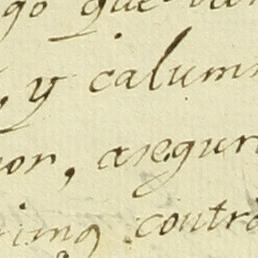 go que
, y calum
or, asegur
ima contra